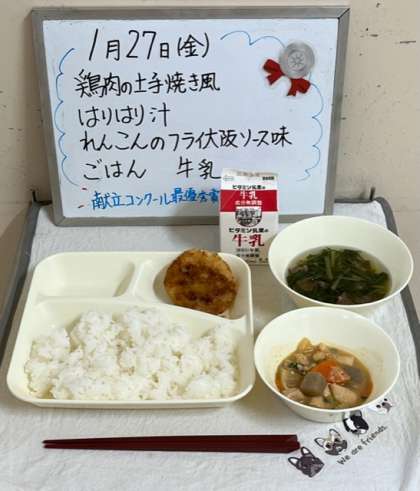 1月27日(金)
鶏肉の土手焼き風
はりはり汁
れんこんのフライ大阪ソース味
ごはん 牛乳
献立コンクール最優秀賞
ビタミン乳業の
牛乳
成分無調整
ビタミン乳業の
牛乳
We are friends.